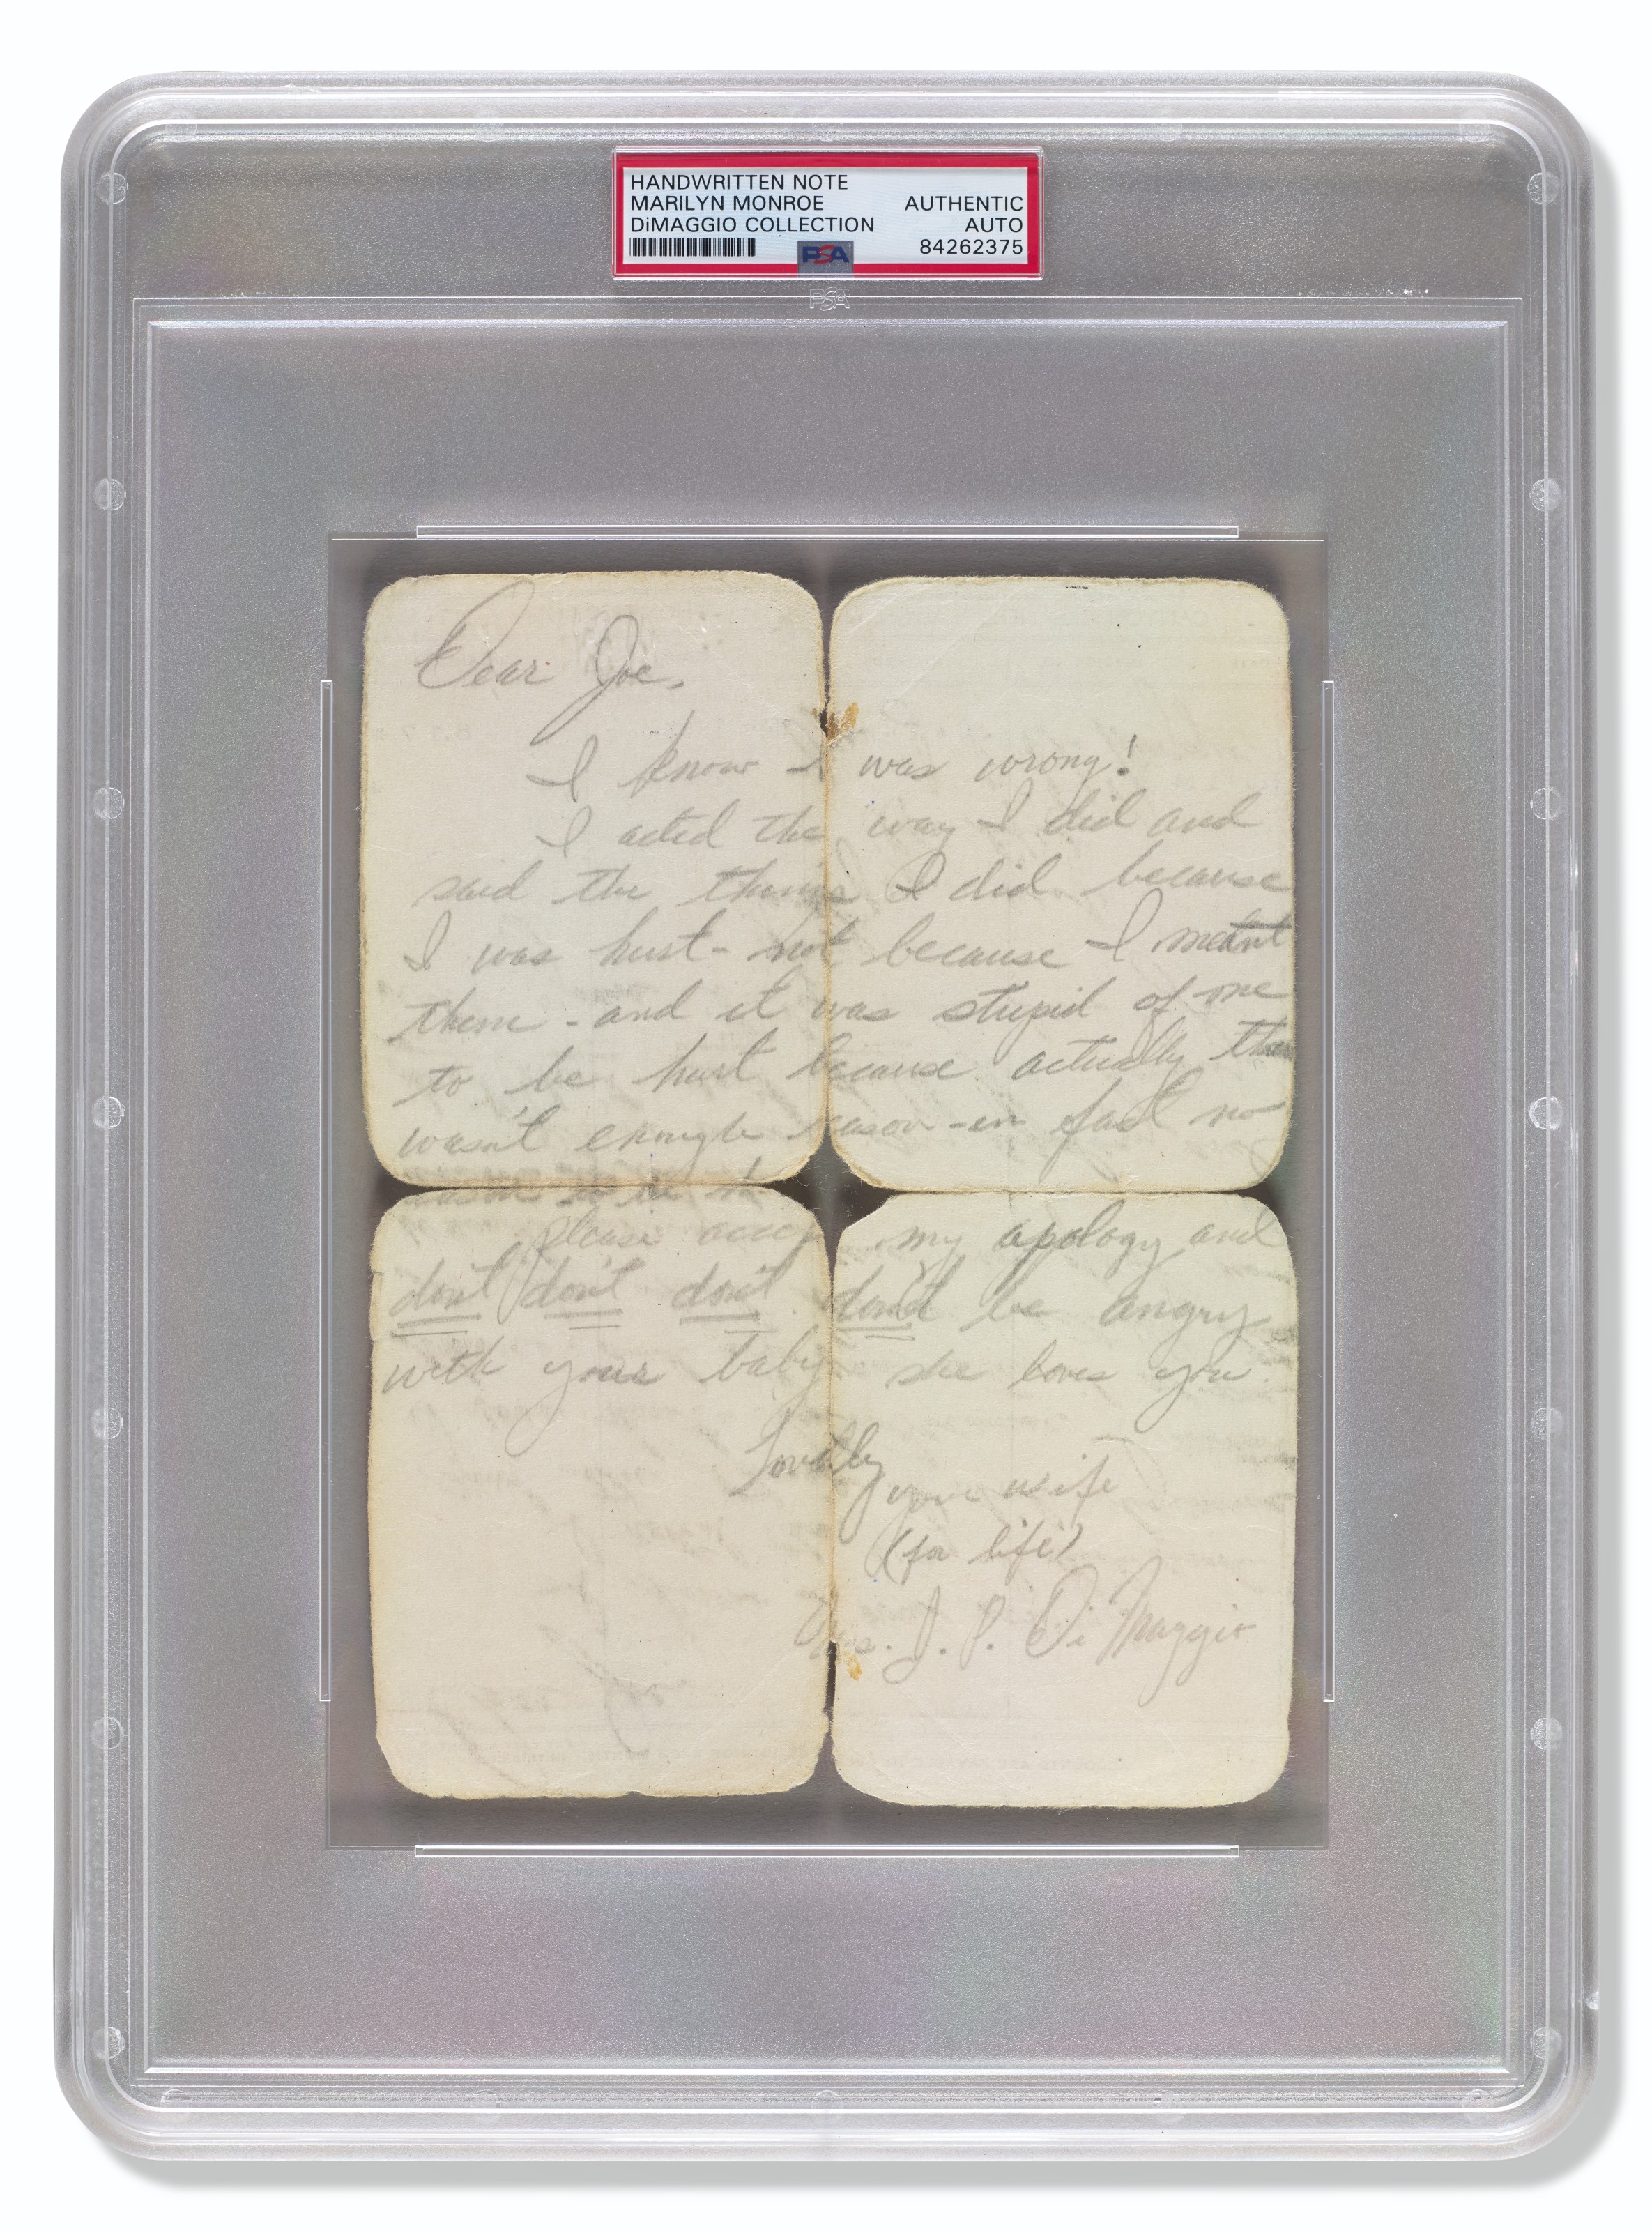 HANDWRITTEN NOTE
MARILYN MONROE AUTHENTIC
DiMAGGIO COLLECTION AUTO
PSA 84262375
PSA
Dear Joe,
I know I was wrong!
I acted the way I did and
said the things I did because
I was hurt - not because I meant
them - and it was stupid of me
to be hurt because actually there
wasn't enough reason - in fact no
reason
please accept my apology and
don't don't don't don't be angry
with your baby she loves you.
Lovingly
your wife
(for life)
Mrs. J. P. Di Maggio